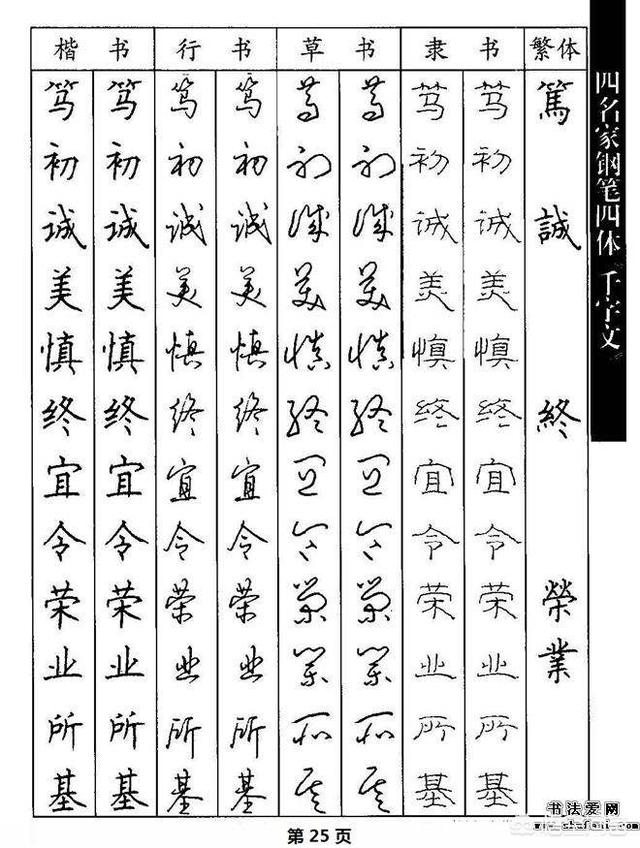 楷书 行书 草书 隶书 繁体
笃 笃 笃 笃 笃 笃 笃 笃 篤
初 初 初 初 初 初 初 初
诚 诚 诚 诚 诚 诚 诚 诚 誠
美 美 美 美 美 美 美 美
慎 慎 慎 慎 慎 慎 慎 慎
终 终 终 终 终 终 终 终 終
宜 宜 宜 宜 宜 宜 宜 宜
令 令 令 令 令 令 令 令
荣 荣 荣 荣 荣 荣 荣 荣 榮
业 业 业 业 业 业 业 业 業
所 所 所 所 所 所 所 所
基 基 基 基 基 基 基 基
四名家钢笔四体 千字文
第 25 页
书法爱网